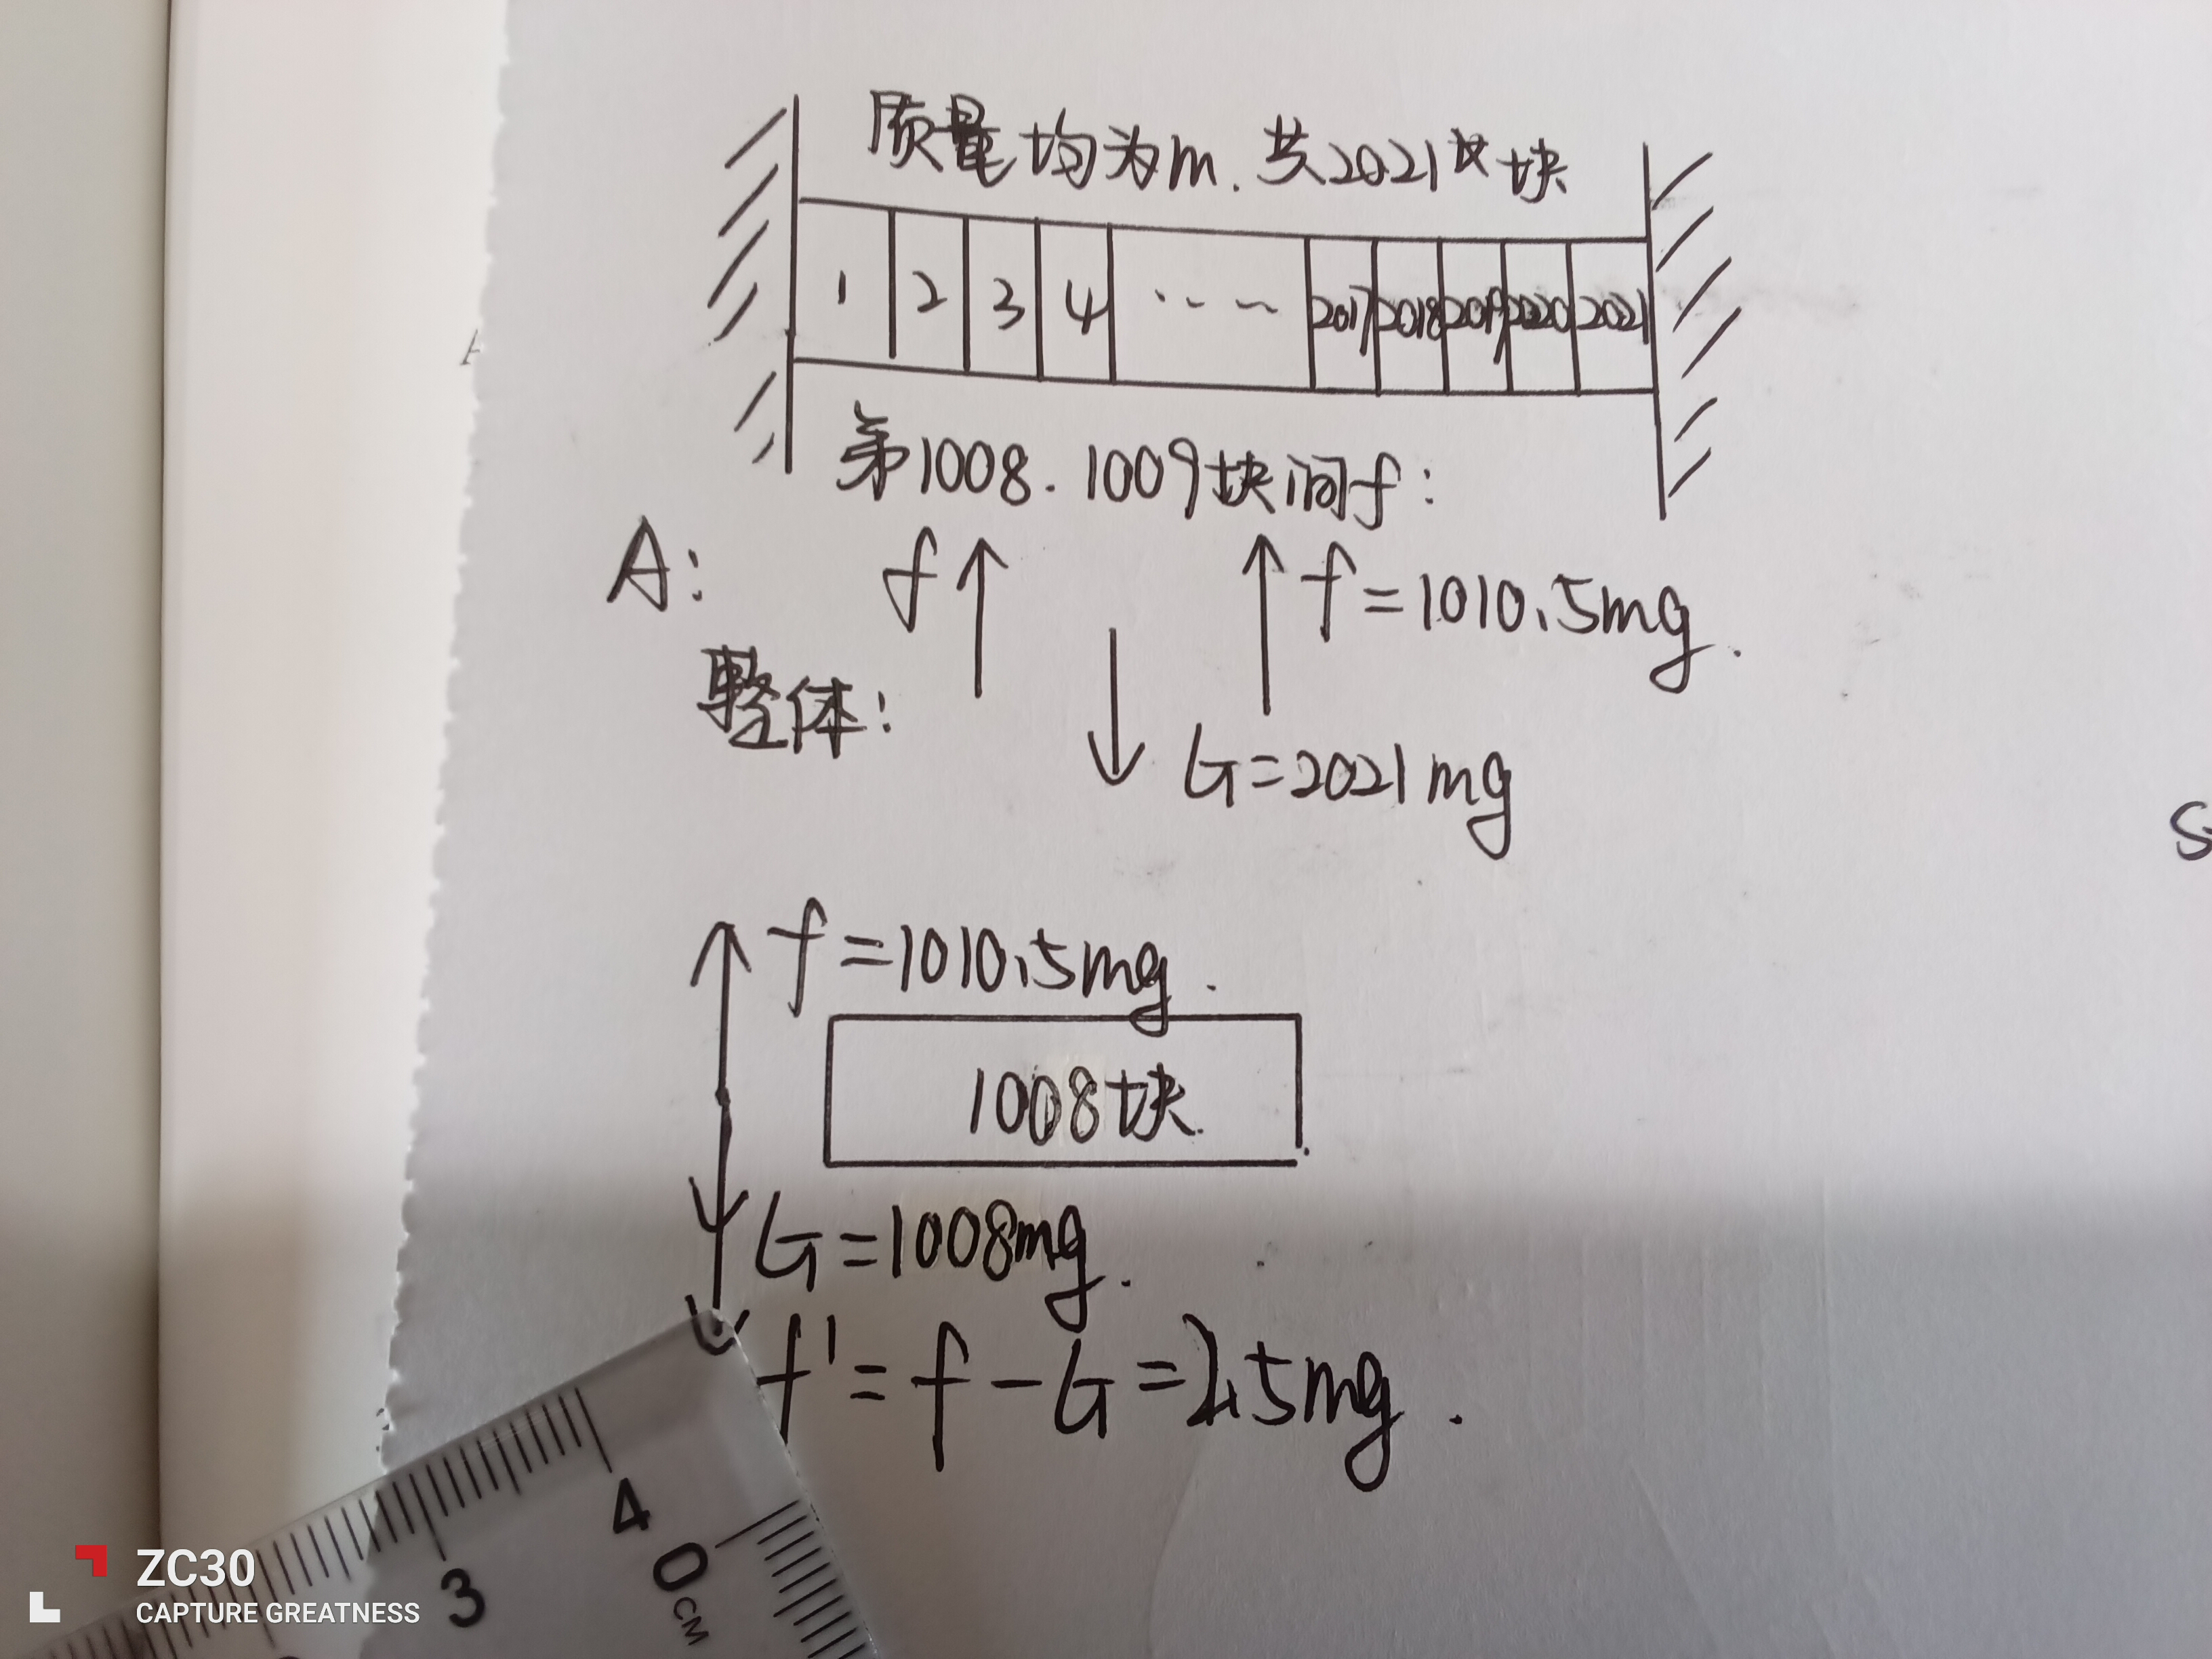 质量均为m.共2021块
1 2 3 4 ... 2017 2018 2019 2020 2021
第1008.1009块间f:
A: f f=1010.5mg.
整体:
G=2021mg
f=1010.5mg.
1008块.
G=1008mg.
f'=f-G=2.5mg.
3 4
0
CM
S
ZC30
CAPTURE GREATNESS